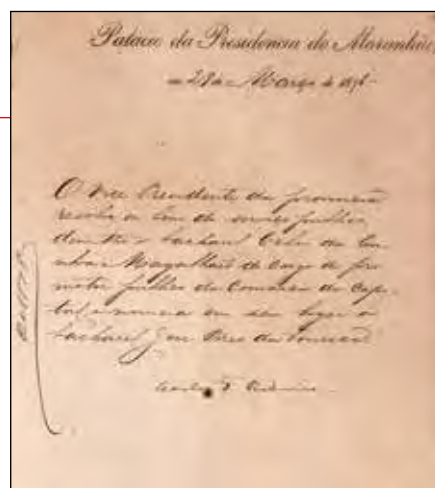 Palacio da Presidencia do Maranhão,
em 28 de Março de 1878
O Vice Presidente da provincia
resolve a bem do serviço publico
demittir o bacharel Celso da Cu
nha Magalhães do cargo de pro
motor publico da Comarca da Capi
tal e nomeia em seu lugar o
bacharel
da Fonseca
Carlos F. Ribeiro